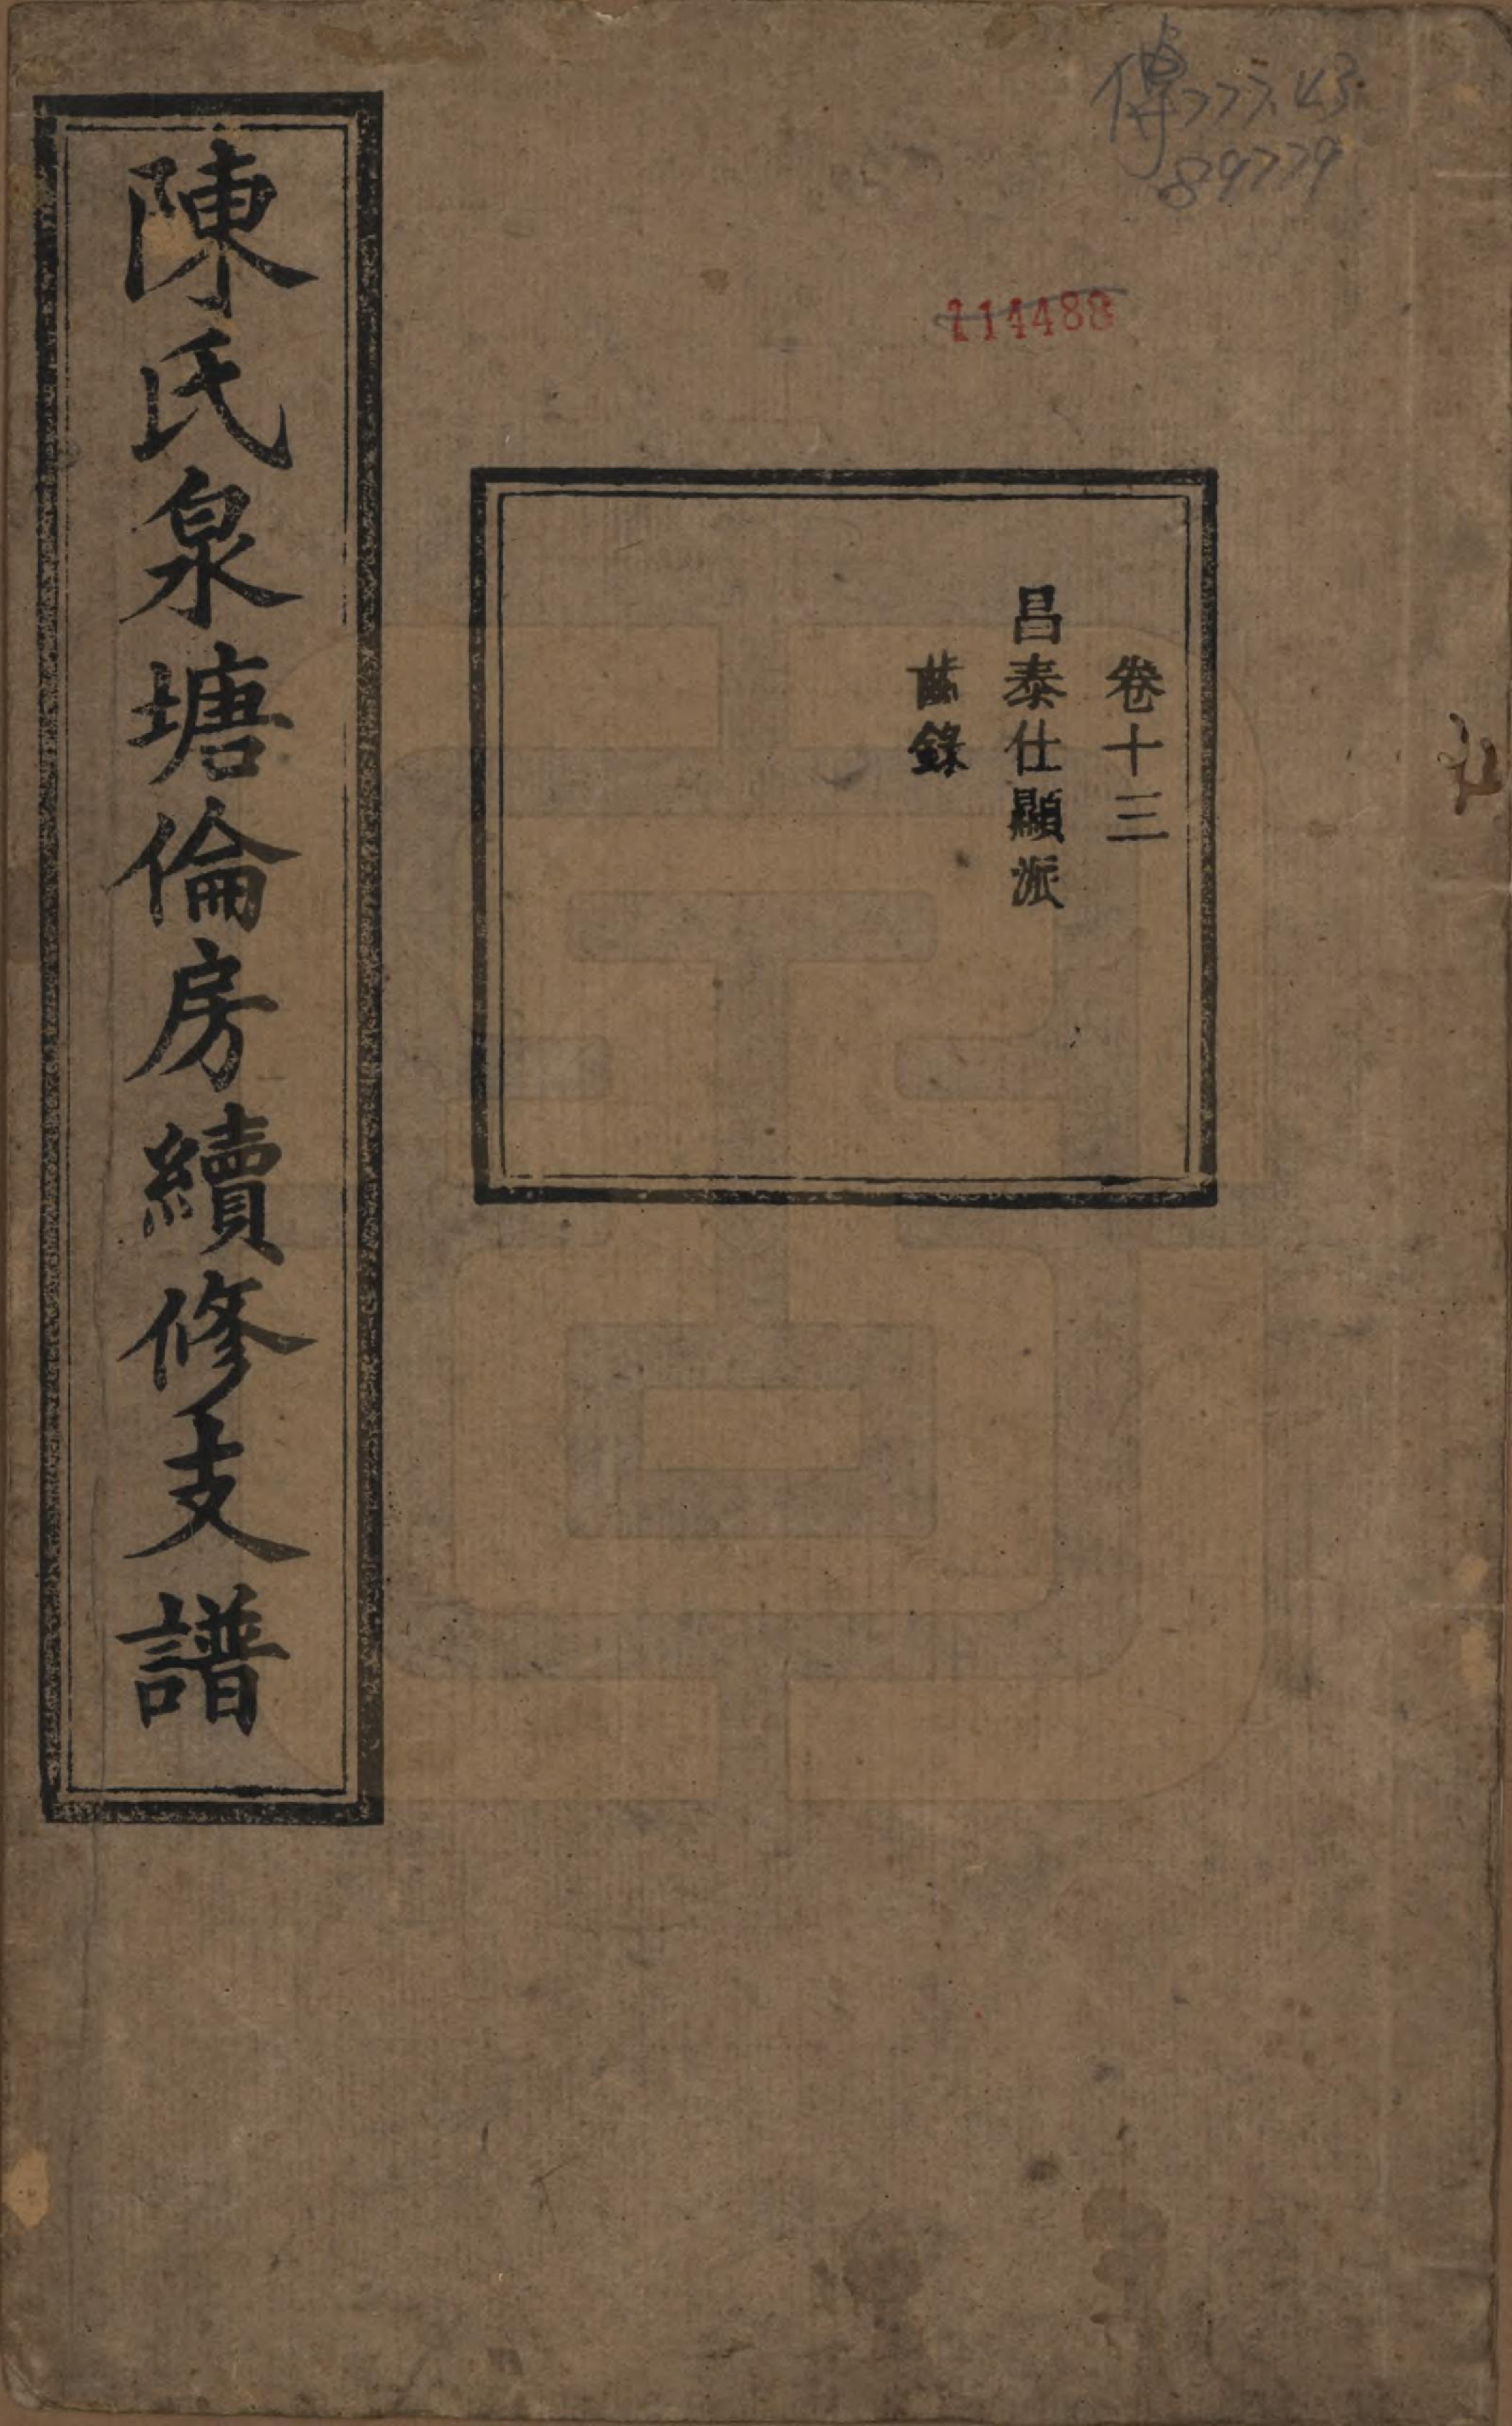 傳777.43
89779
214488
卷十三
昌泰仕顯派
齒錄
陳氏泉塘倫房續修支譜